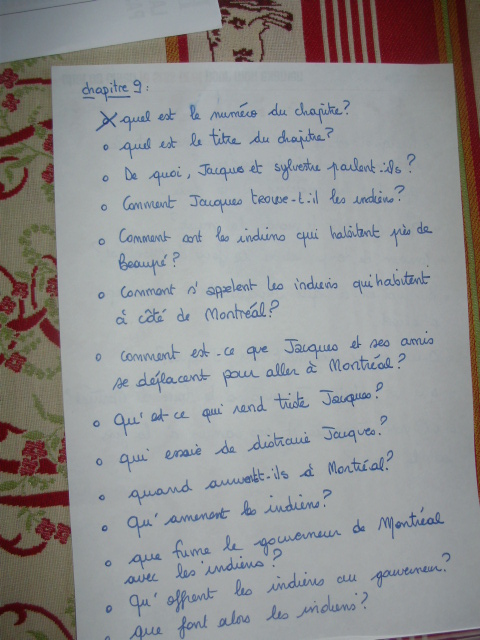 chapitre 9 :
quel est le numéro du chapitre?
quel est le titre du chapitre?
De quoi, Jacques et sylvestre parlent-ils?
Comment Jacques trouve-t-il les indiens?
Comment sont les indiens qui habitent près de
Beaupré?
Comment s'appelent les indiens qui habitent
à côté de Montréal?
comment est-ce que Jacques et ses amis
se déplacent pour aller à Montréal?
Qu'est-ce qui rend triste Jacques?
qui essaie de distraire Jacques?
quand arrivent-ils à Montréal?
Qu'amènent les indiens?
que fume le gouverneur de Montréal
avec les indiens?
Qu'offrent les indiens au gouverneur?
que font alors les indiens?